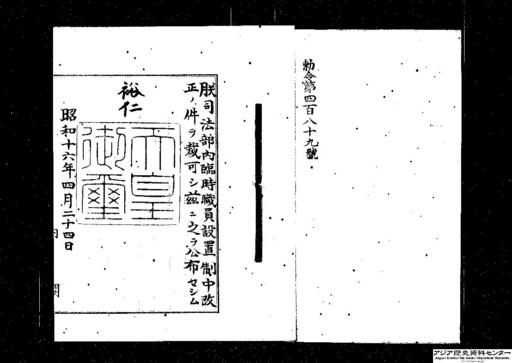 勅令第四百八十九號
朕司法部內臨時職員設置制中改
正ノ件ヲ裁可シ茲ニ之ヲ公布セシム
裕仁
天皇
御璽
昭和十六年四月二十四日
アジア歴史資料センター
Japan Center for Asian Historical Records